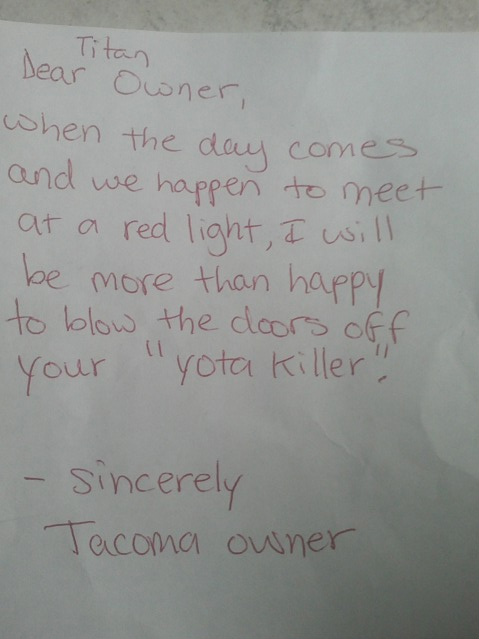 Dear Titan Owner,
when the day comes
and we happen to meet
at a red light, I will
be more than happy
to blow the doors off
your "yota killer".
- Sincerely
Tacoma owner